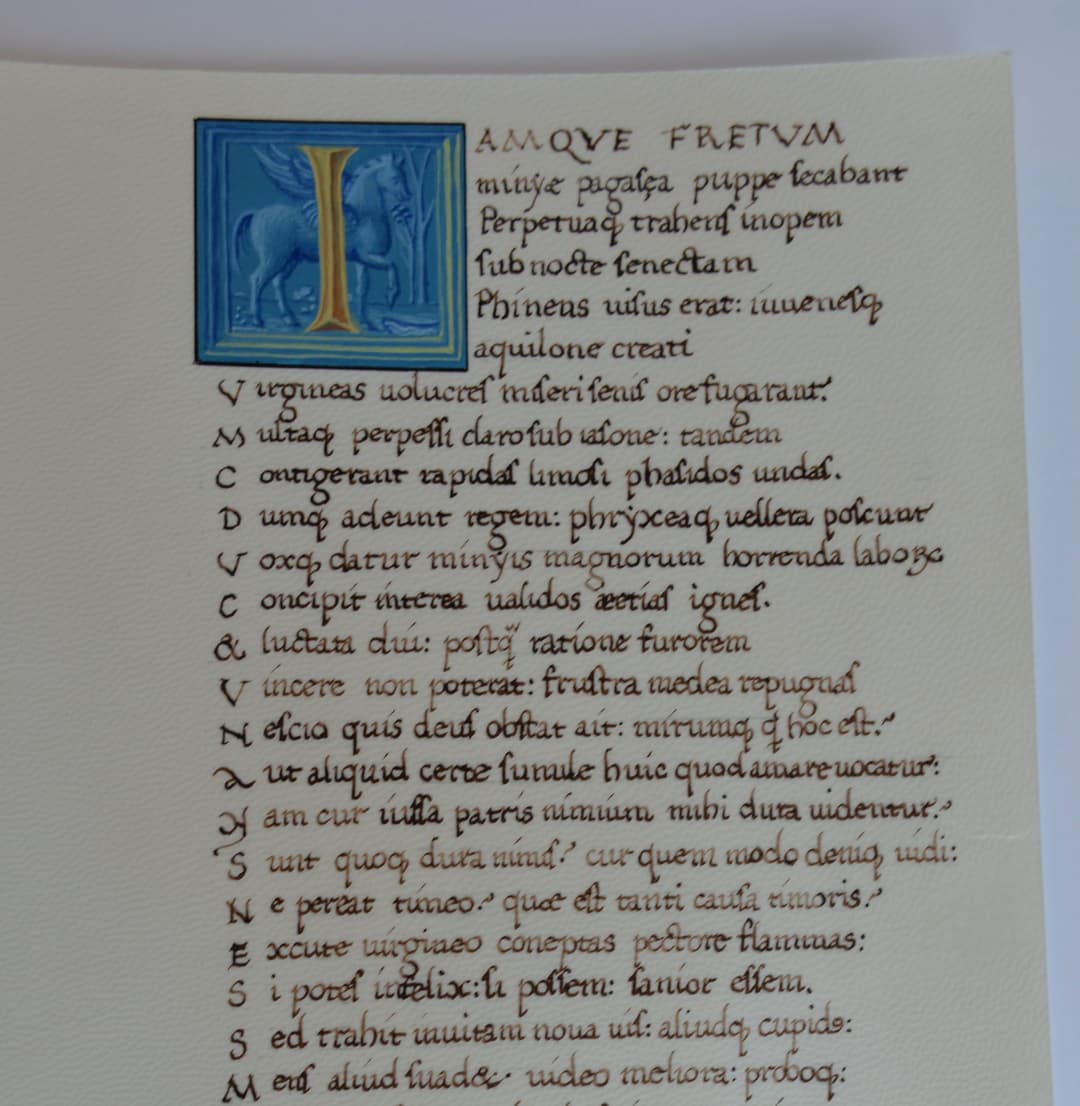 IAMQVE FRETVM
minyæ pagasęa puppe secabant
Perpetuaq; trahens inopem
sub nocte senectam
Phineus uisus erat: iuuenesq;
aquilone creati
Virgineas uolucres miseri senis ore fugarant:
Multaq; perpessi claro sub iasone: tandem
Contigerant rapidas limosi phasidos undas.
Dumq; adeunt regem: phryxeaq; uellera poscunt
Voxq; datur minyis magnorum horrenda laboꝝ
Concipit interea ualidos æetias ignes.
& luctata diu: postq̃ ratione furorem
Vincere non poterat: frustra medea repugnas
Nescio quis deus obstat ait: mirumq; ꝙ hoc est.
Aut aliquid certe simile huic quod amare uocatur:
Nam cur iussa patris nimium mihi dura uidentur.
Sunt quoq; dura nimis. cur quem modo deniq; uidi:
Ne pereat timeo. quæ est tanti causa timoris.
Excute uirgineo conceptas pectore flammas:
Si potes infelix: si possem: sanior essem.
Sed trahit inuitam noua uis: aliudq; cupido:
Mens aliud suad&. uideo meliora: proboq;: